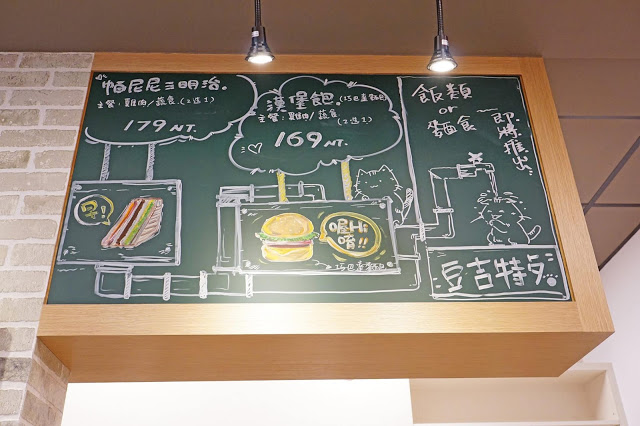 帕尼尼三明治.
主餐:雞肉/蔬食.(2選1)
179 NT.
漢堡飽.(巧巴達麵包)
主餐:雞肉/蔬食.(2選1)
169 NT.
飯類
or
麵食
即將推出
喔Hi
唷!!
巧巴達麵包
豆吉特夕